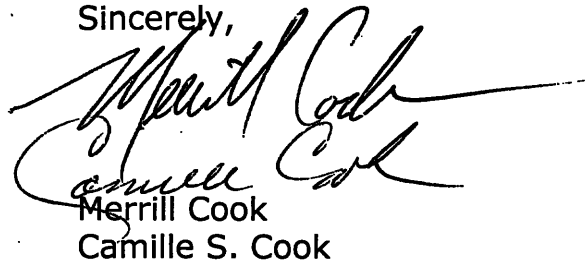 Sincerely,
Merrill Cook
Camille Cook
Merrill Cook
Camille S. Cook